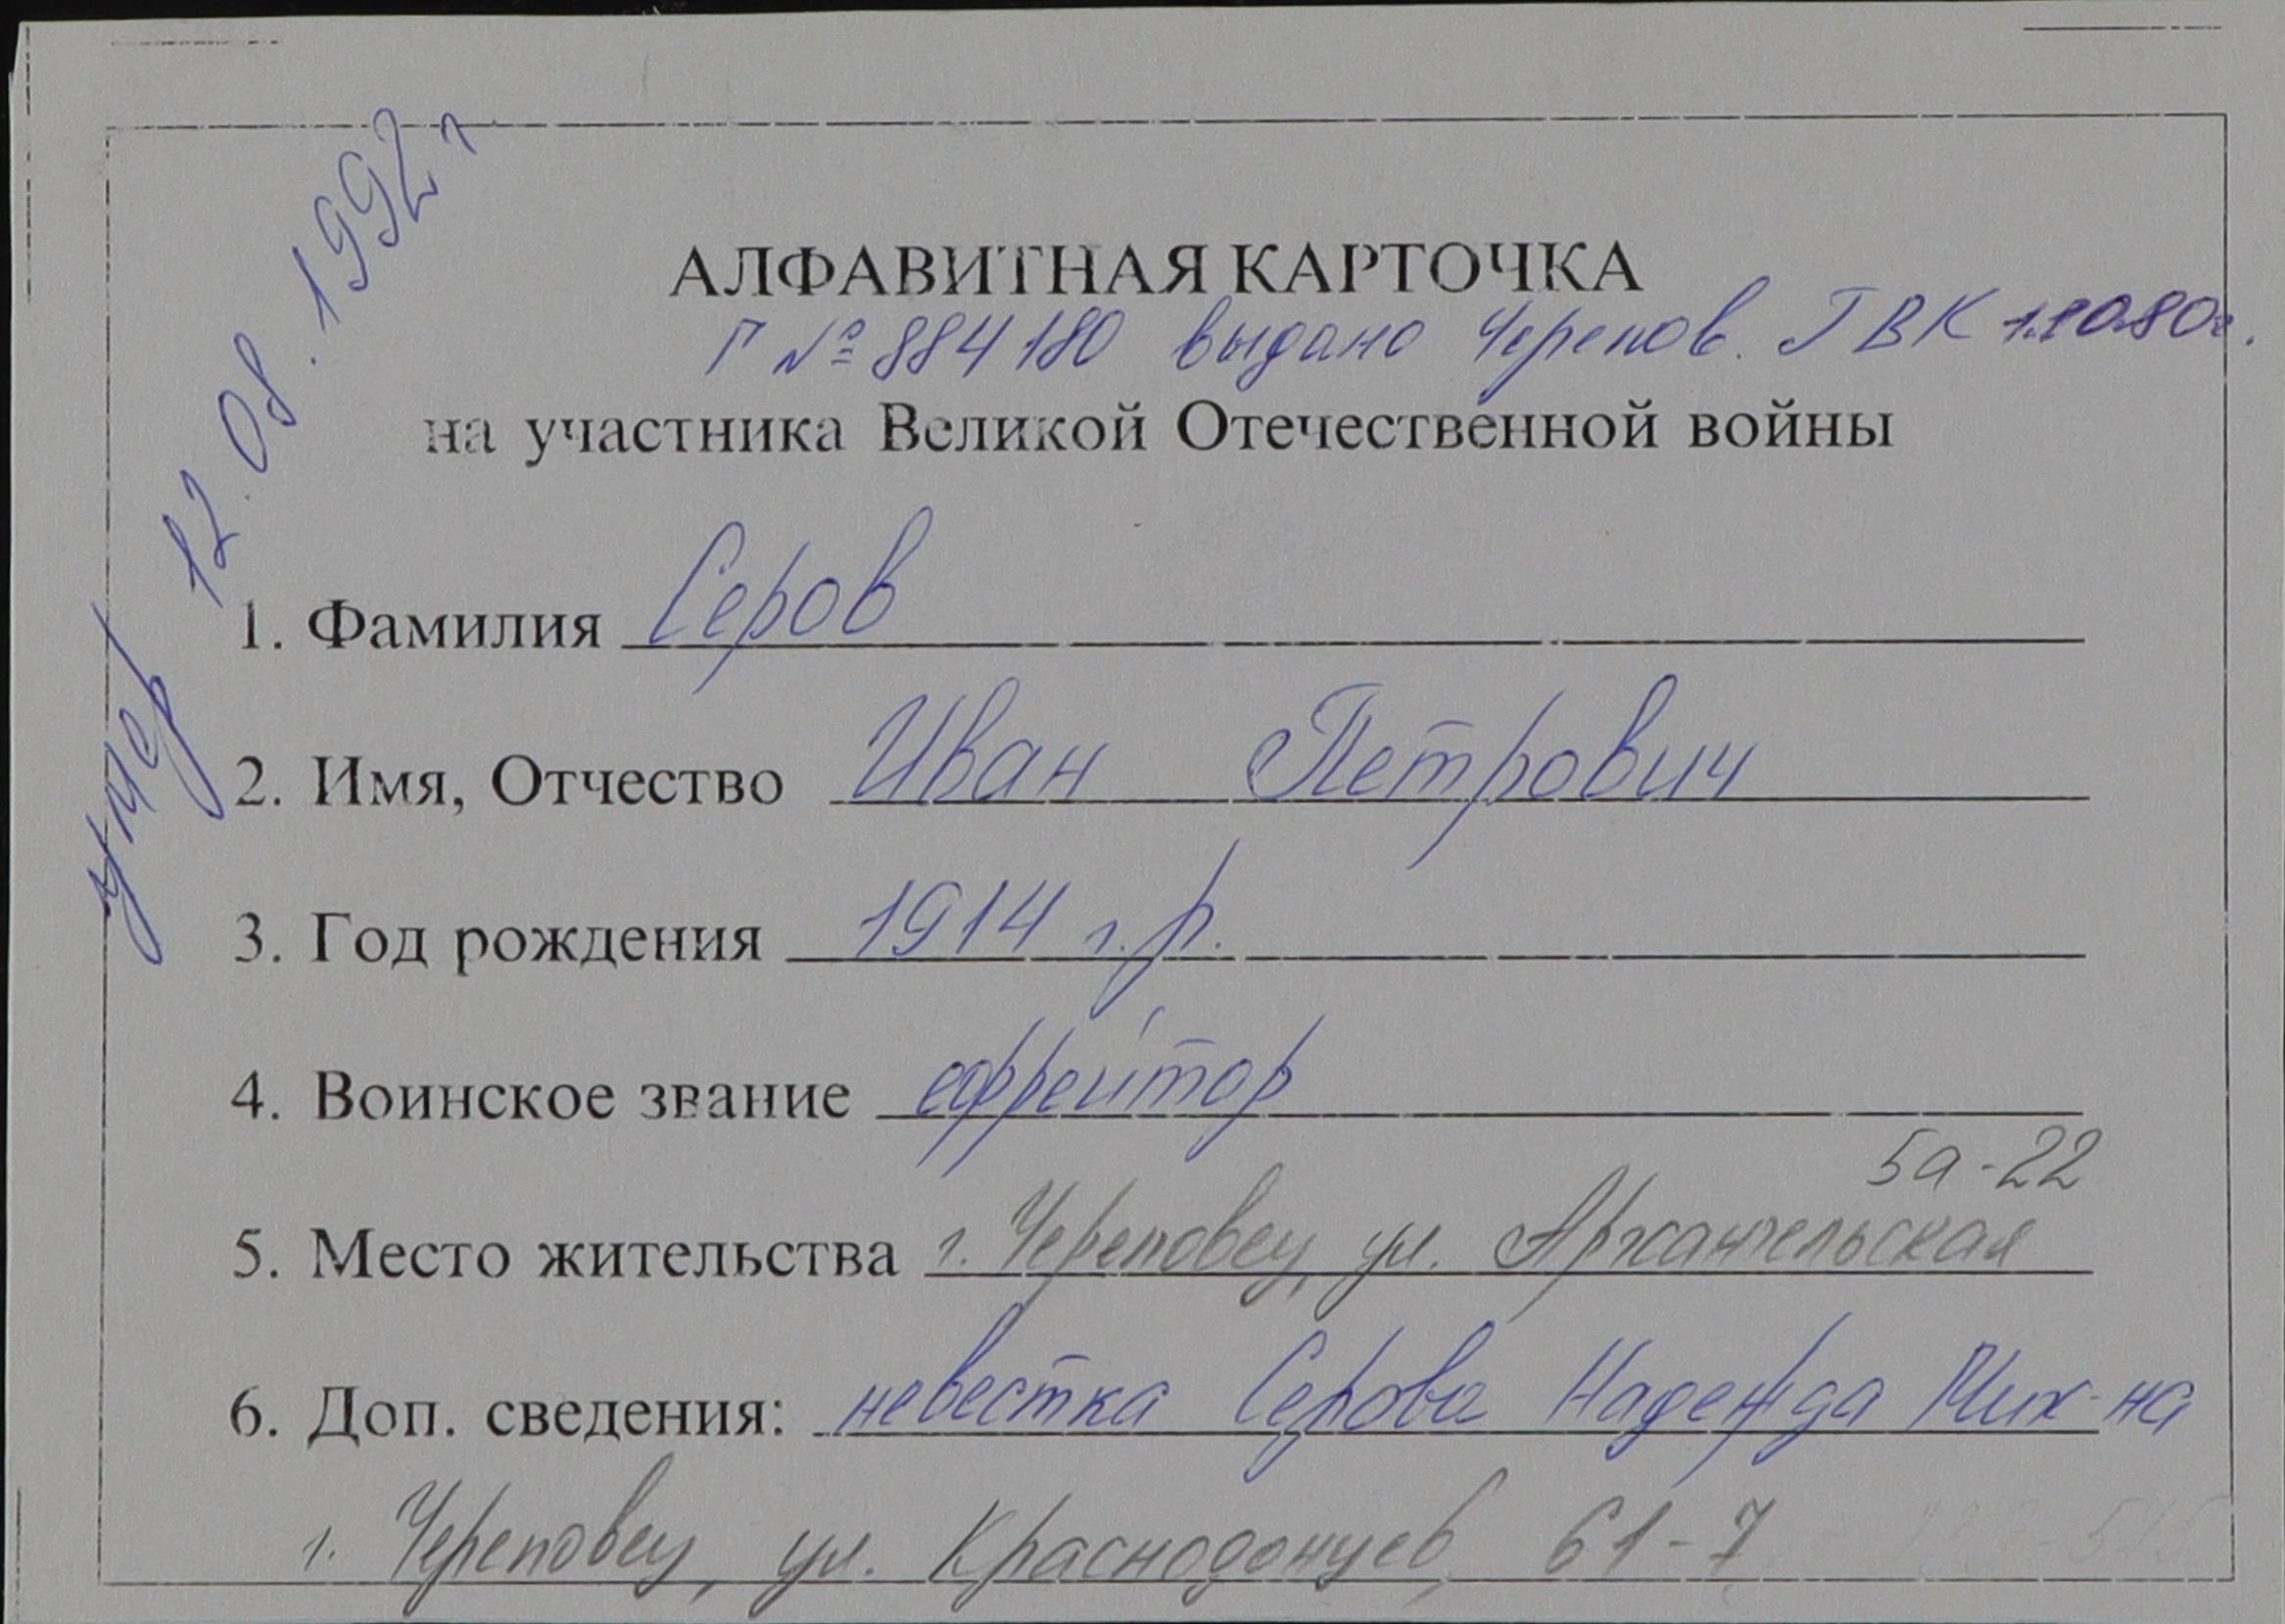 умер 12.08.1992 г
АЛФАВИТНАЯ КАРТОЧКА
Г № 884180 выдано Черепов. ГВК
на участника Великой Отечественной войны
1. Фамилия Серов
2. Имя, Отчество Иван Петрович
3. Год рождения 1914 г.р.
4. Воинское звание ефрейтор
5а-22
5. Место жительства г. Череповец, ул. Архангельская
6. Доп. сведения: невестка Серова Надежда Мих-на
г. Череповец, ул. Краснодонцев, 61-7